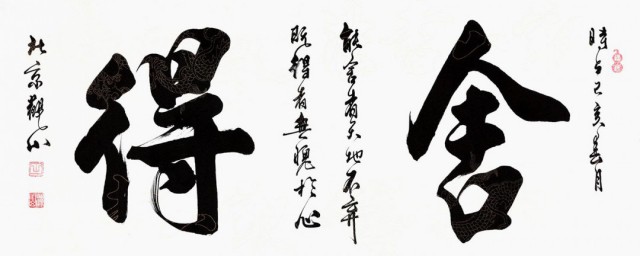 時于己亥春月
舍
能舍者天地不弃
既得者無愧於心
得
北京觀心